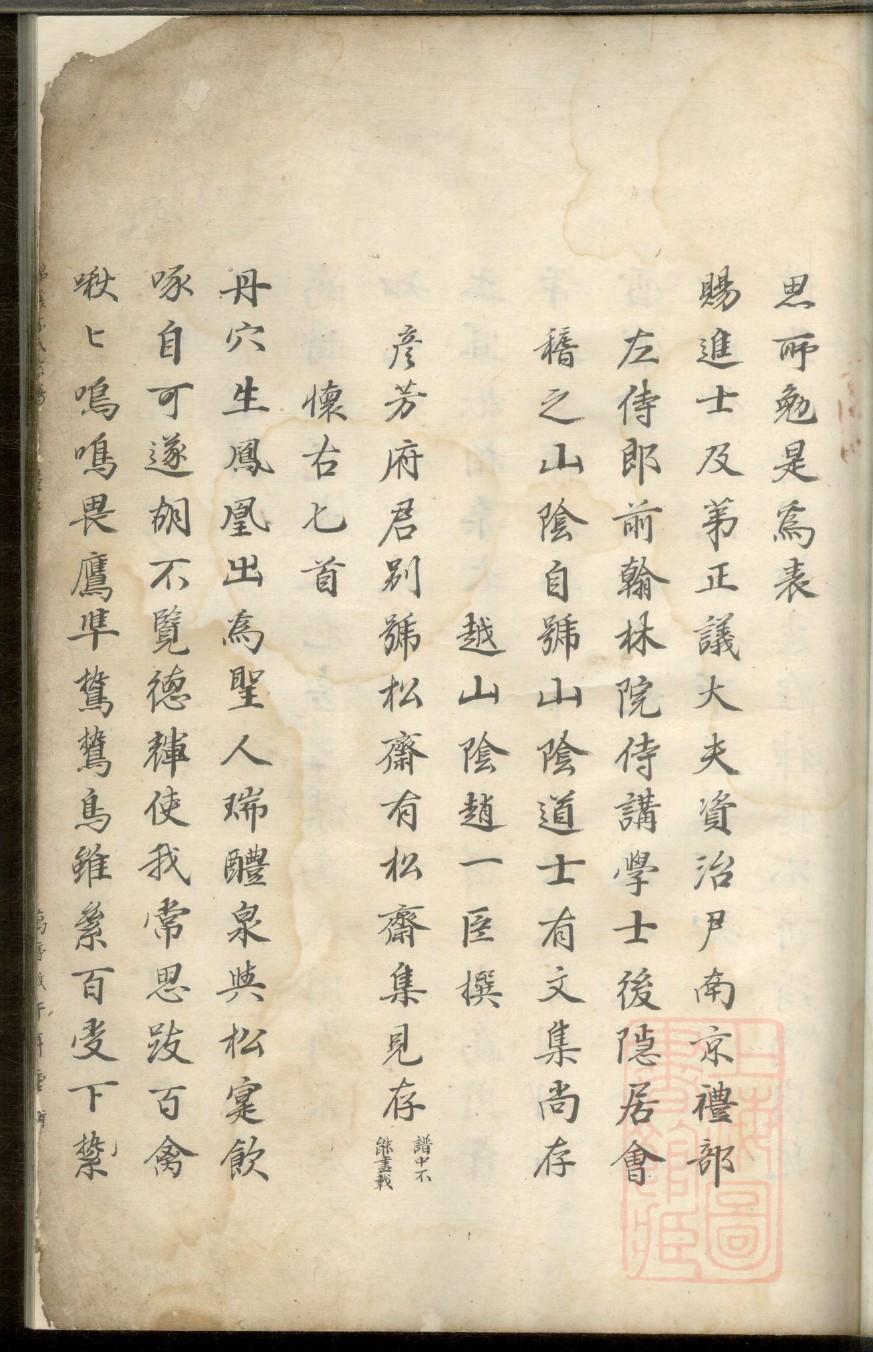 思所勉是為表
賜進士及第正議大夫資治尹南京禮部
左侍郎前翰林院侍講學士後隱居會
稽之山陰自號山陰道士有文集尚存
越山陰趙一臣撰
彥芳府君別號松齋有松齋集見存
譜中不
能盡載
懷右七首
丹穴生鳳凰出為聖人瑞醴泉與松寔飲
啄自可遂胡不覽德輝使我常思跂百禽
啾匕嗚嗚畏鷹隼鷙鷙鳥雖纍百叓下
上海圖書館藏